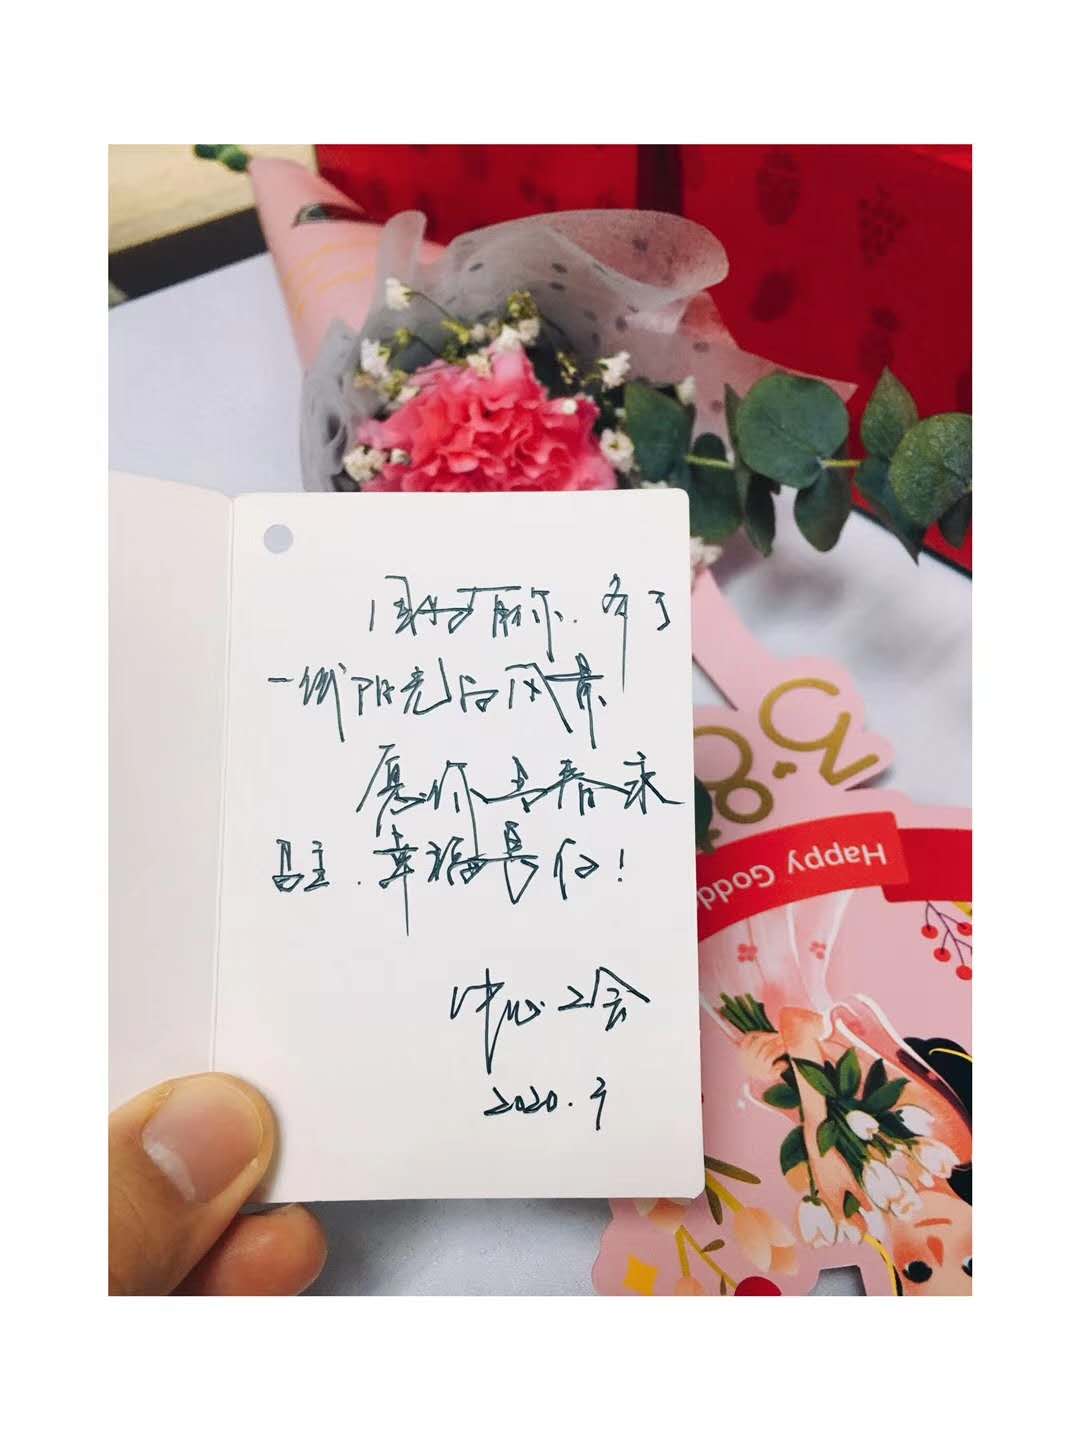 因为有你，有了
一缕阳光的风景
愿你青春永
昌主，幸福长伴！
中心工会
2020.3
Happy Godd